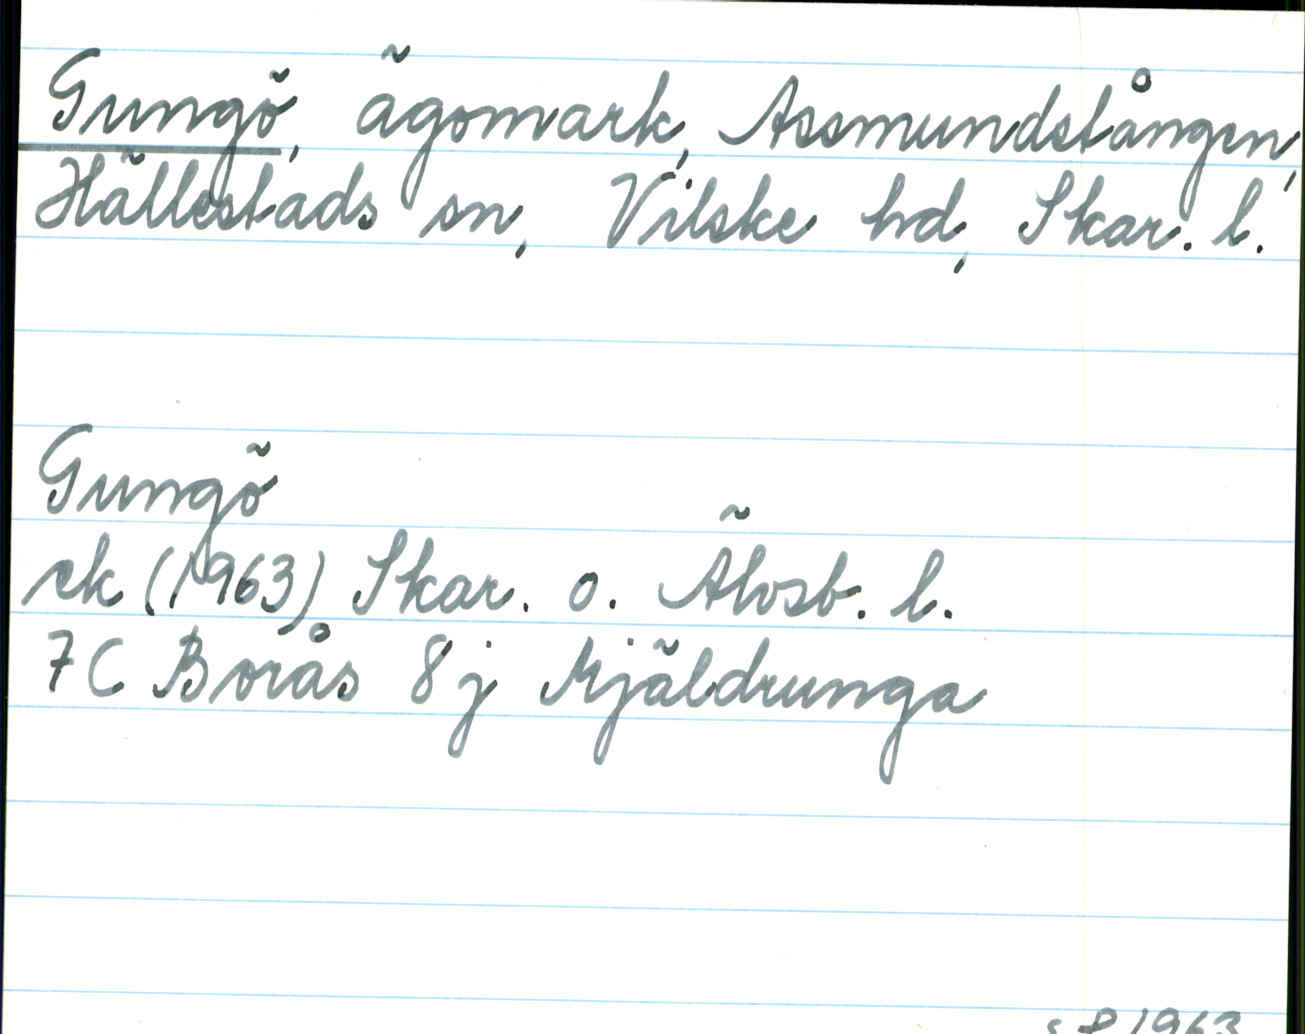 Gungö, ägomark, Assmundstången,
Hällestads sn, Vilske hd, Skar. l.
Gungö
ek (1963) Skar. o. Älvsb. l.
7C Borås 8j Mjäldrunga
1963